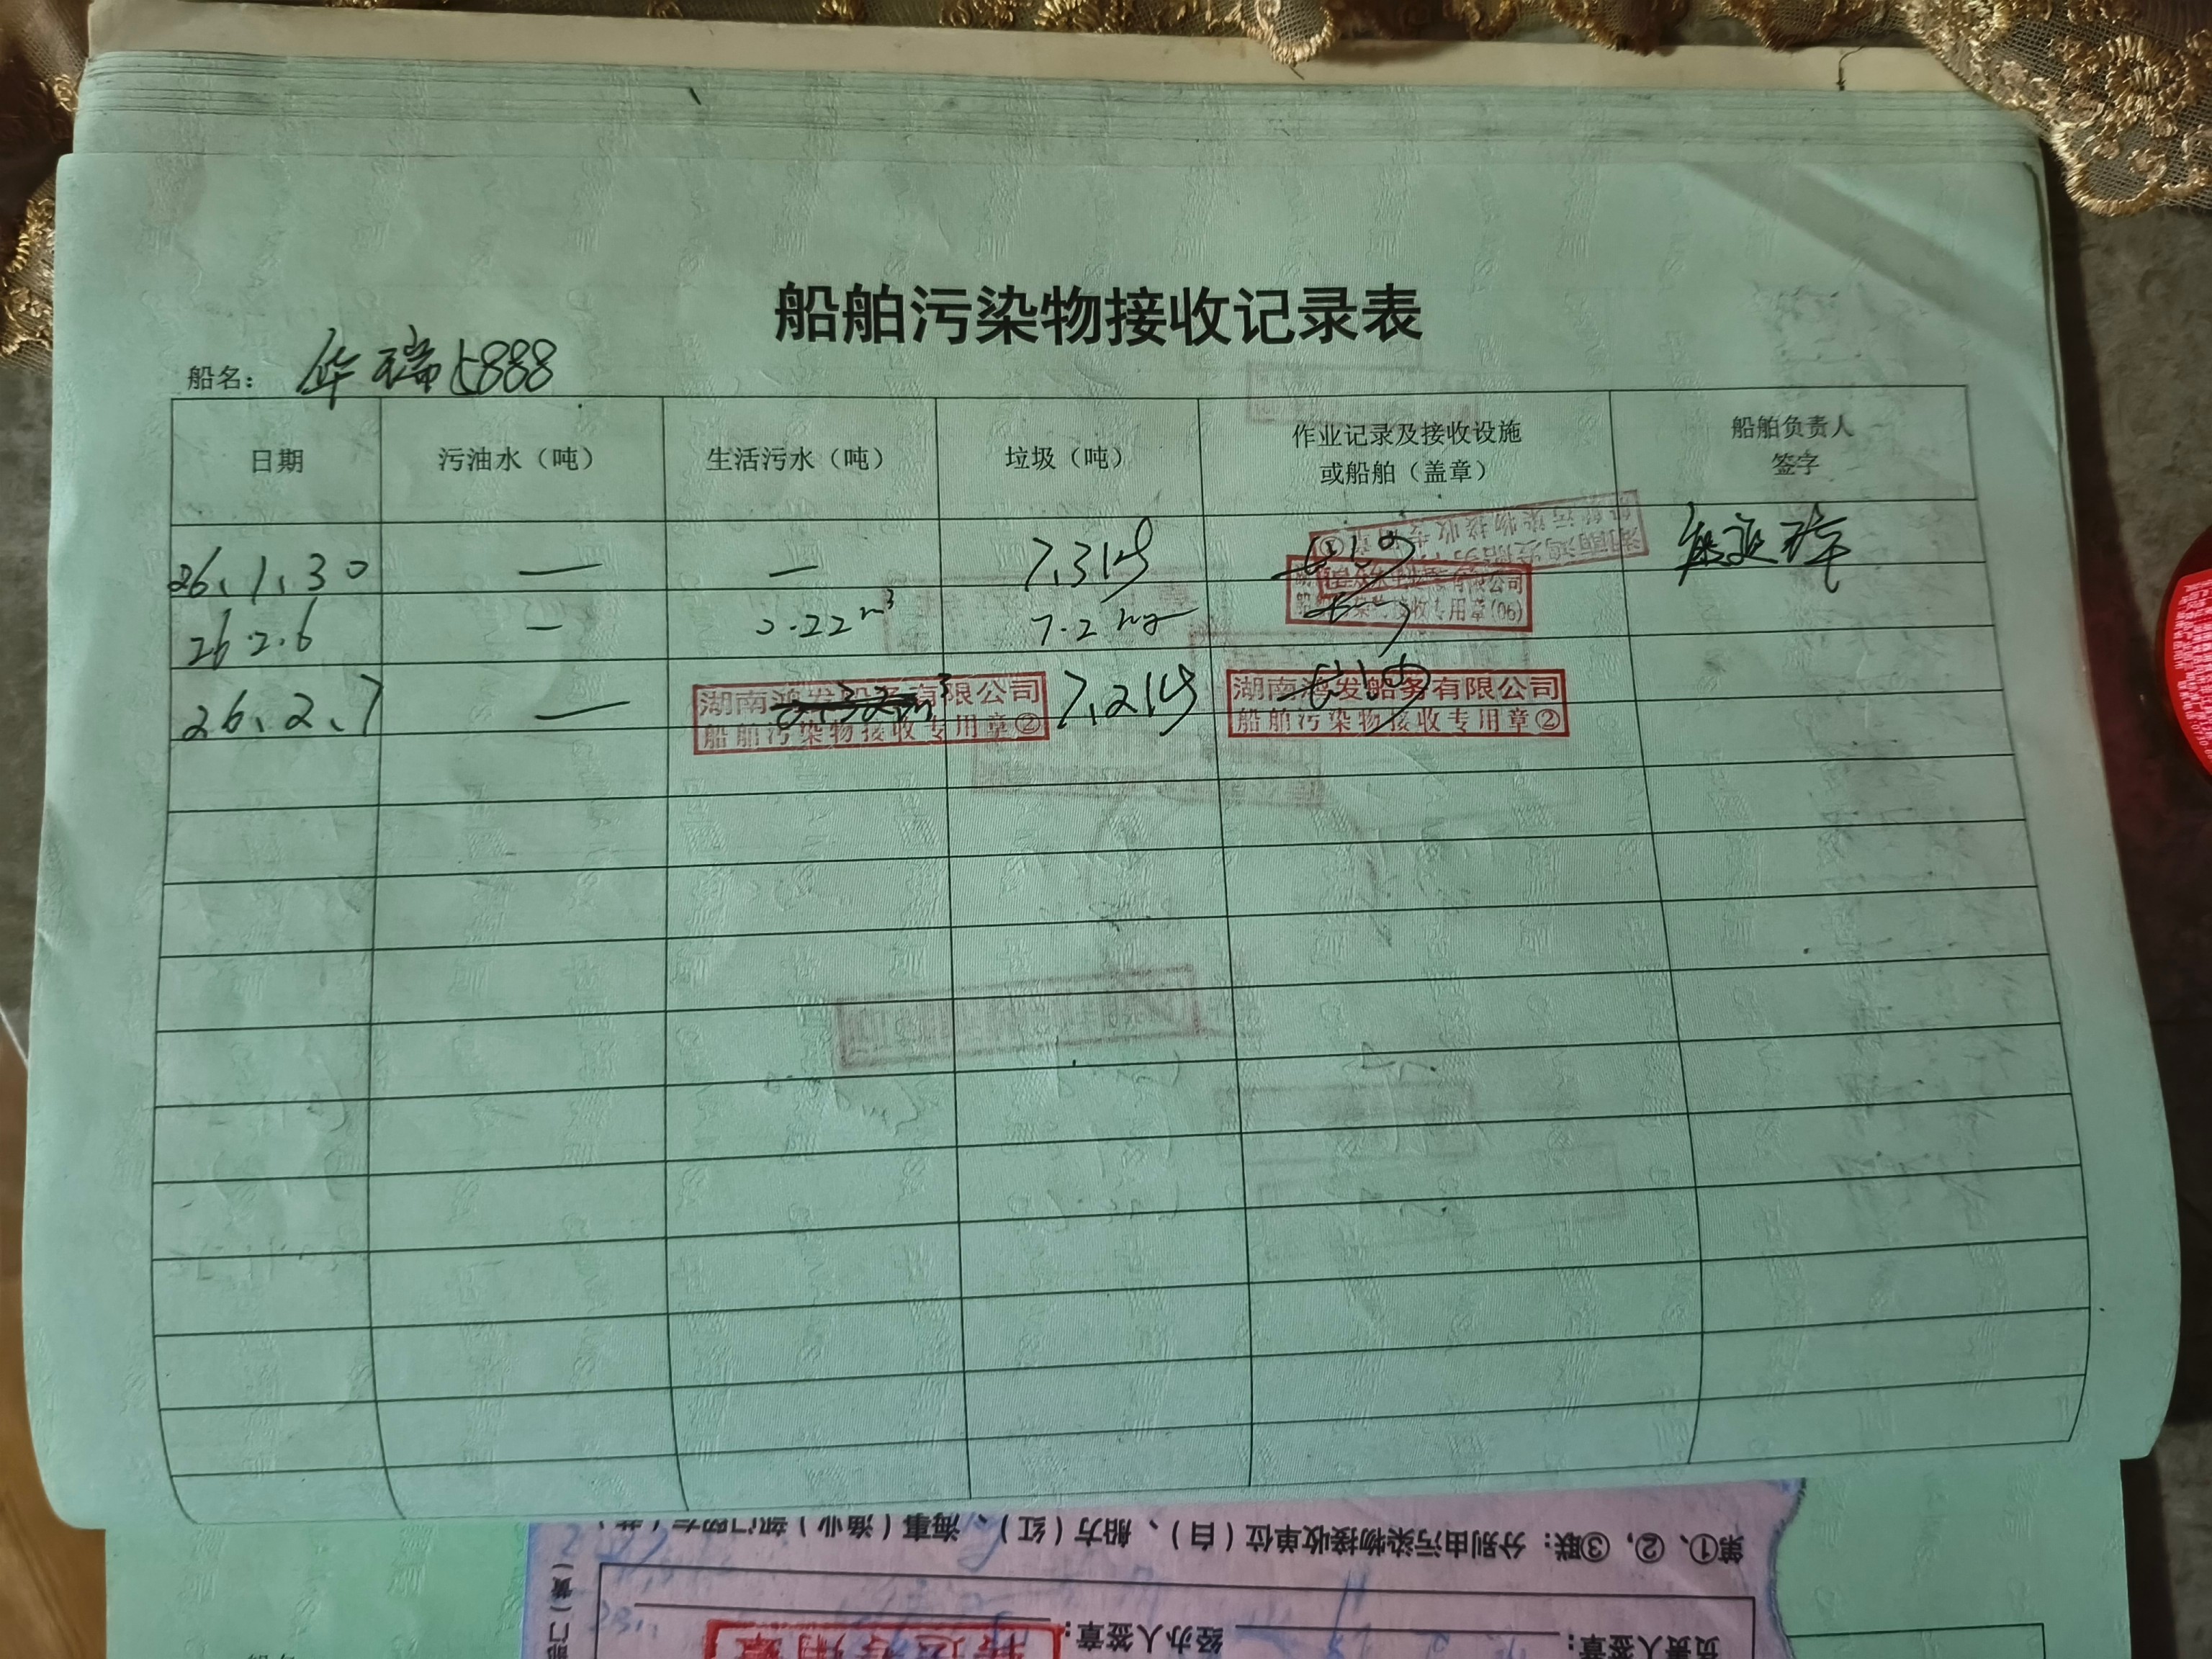 船舶污染物接收记录表
船名： 华瑞5888
日期 污油水（吨） 生活污水（吨） 垃圾（吨） 作业记录及接收设施或船舶（盖章） 船舶负责人签字
26.1.30 — — 7.3kg
26.2.6 — 0.22m³ 7.2kg
船舶污染物接收专用章(06)
26.2.7 — 7.2kg
湖南鸿发船务有限公司
船舶污染物接收专用章②
湖南鸿发船务有限公司
船舶污染物接收专用章②
第①、②、③联：分别由污染物接收单位（白）、船方（红）、海事（渔业）部门
负责人签章：
经办人签章：